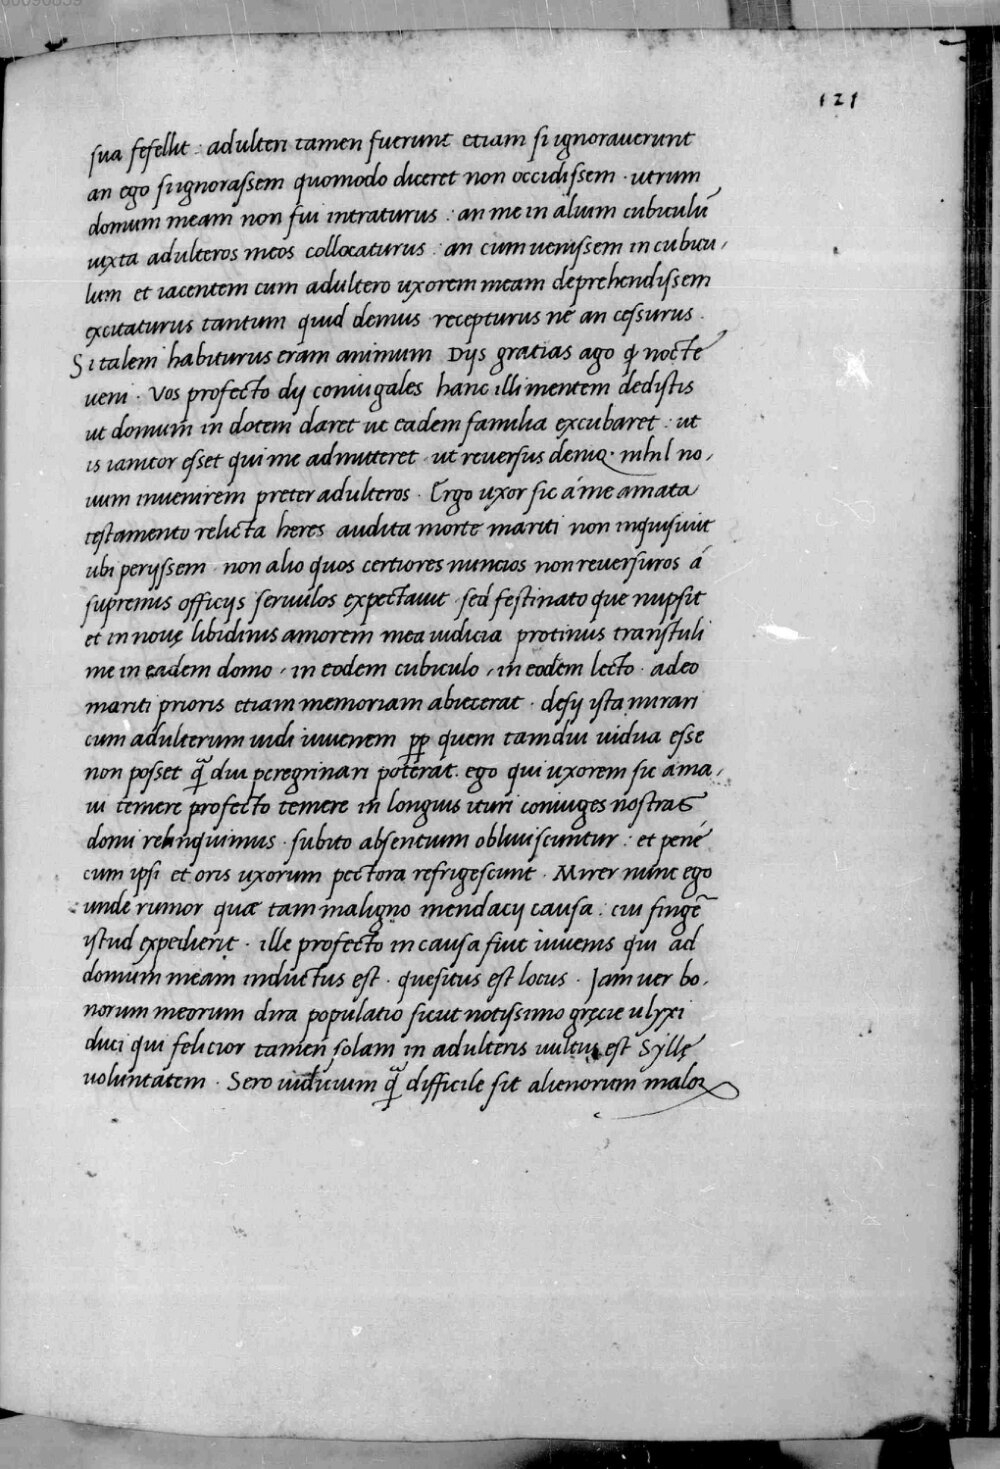 00090839
121
sua fefellit : adulteri tamen fuerunt etiam si ignorauerunt
an ego si ignorassem quomodo diceret non occidissem · utrum
domum meam non fui intraturus : an me in alium cubiculū
iuxta adulteros meos collocaturus : an cum uenissem in cubicu,
lum et iacentem cum adultero uxorem meam deprehendissem
excitaturus tantum quid demus recepturus né an cessurus .
Si talem habiturus eram animum Diis gratias ago ꝙ nocte
ueni · Vos profecto dij coniugales hanc illi mentem dedistis
ut domum in dotem daret ut eadem familia excubaret : ut
is ianitor esset qui me admitteret ut reuersus deniqꝫ · nihil no,
uum inuenirem preter adulteros · Ergo uxor sic á me amata
testamento relicta heres audita morte mariti non inquisiuit
ubi perijssem · non alio quos certiores nuncios non reuersuros á
supremis officijs seruulos expectauit · sed festinato que nupsit
et in nouę libidinis amorem mea iudicia protinus transtuli
me in eadem domo , in eodem cubiculo , in eodem lecto · adeo
mariti prioris etiam memoriam abiecerat · desij ista mirari
cum adulterum uidi iuuenem pp̄ quem tamdiu uidua esse
non posset ꝗ̄ diu peregrinari poterat . ego qui uxorem sic ama,
ui temere profecto temere in longius ituri coniuges nostras
domi relinquimus · subito absentium obliuiscuntur : et pené
cum ipsi et oris uxorum pectora refrigescunt · Mirer nunc ego
unde rumor quæ tam maligno mendacij causa : cui fingē
istud expedierit · ille profecto in causa fiut iuuenis qui ad
domum meam inductus est · quesitus est locus · Jam uer bo,
norum meorum dira populatio sicut notissimo gręcie ulyxi
duci qui felicior tamen solam in adulteris est Syllę
uoluntatem · Sero iudicium ꝗ̄ difficile sit alienorum maloꝝ